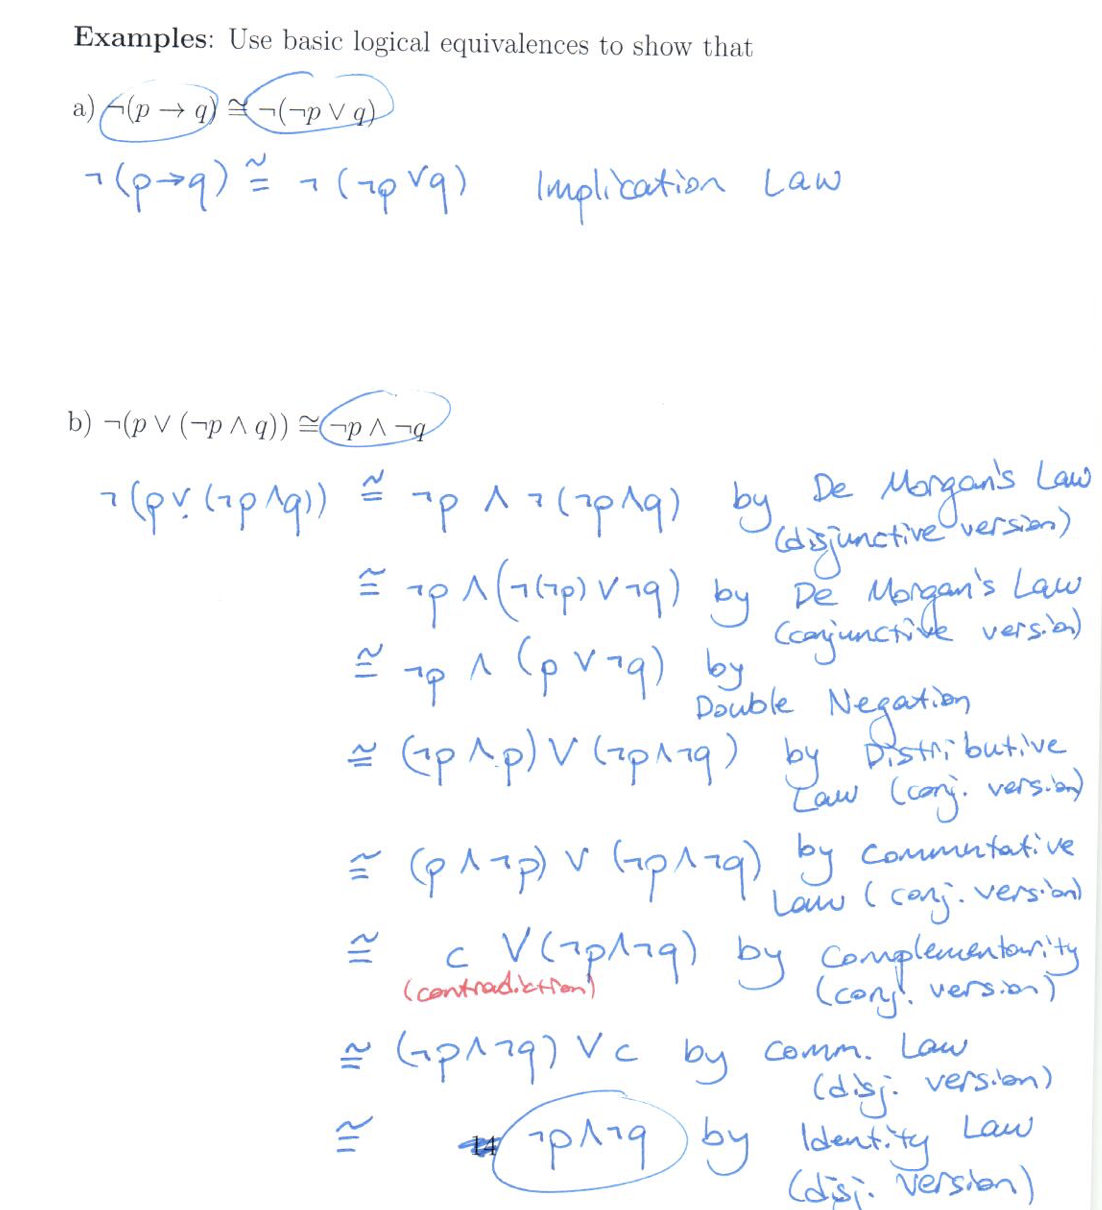 Examples: Use basic logical equivalences to show that
a) ¬(p → q) ≅ ¬(¬p ∨ q)
¬(p→q) ≅ ¬(¬p∨q) Implication Law
b) ¬(p ∨ (¬p ∧ q)) ≅ ¬p ∧ ¬q
¬(p∨(¬p∧q)) ≅ ¬p ∧ ¬(¬p∧q) by De Morgan's Law
(disjunctive version)
≅ ¬p ∧ (¬(¬p) ∨ ¬q) by De Morgan's Law
(conjunctive version)
≅ ¬p ∧ (p ∨ ¬q) by
Double Negation
≅ (¬p ∧ p) ∨ (¬p∧¬q) by Distributive
Law (conj. version)
≅ (p ∧ ¬p) ∨ (¬p∧¬q) by commutative
Law (conj. version)
≅ c ∨ (¬p∧¬q) by complementarity
(contradiction) (conj. version)
≅ (¬p∧¬q) ∨ c by comm. Law
(disj. version)
≅ ¬p∧¬q by Identity Law
14
(disj. version)